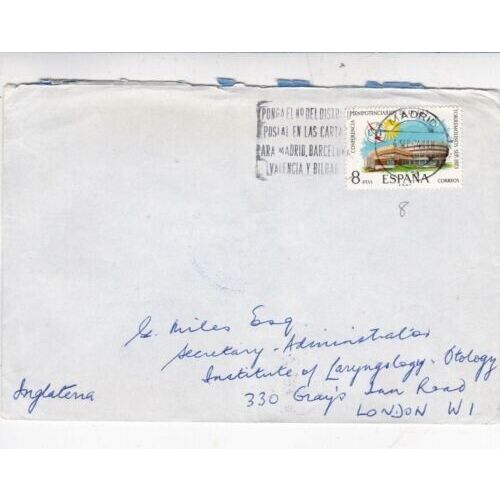 PONGA EL Nº DEL DISTR
POSTAL EN LAS CARTA
PARA MADRID, BARCELONA
VALENCIA Y BILBAO
CONFERENCIA
PLENIPOTENCIARIOS
TORREMOLINOS SEP. 1973
MADRID
8 PTAS ESPAÑA CORREOS
8
G. Miles Esq
Secretary - Administrator
Institute of Laryngology - Otology
330 Gray's Inn Road
LONDON W1
Inglaterra